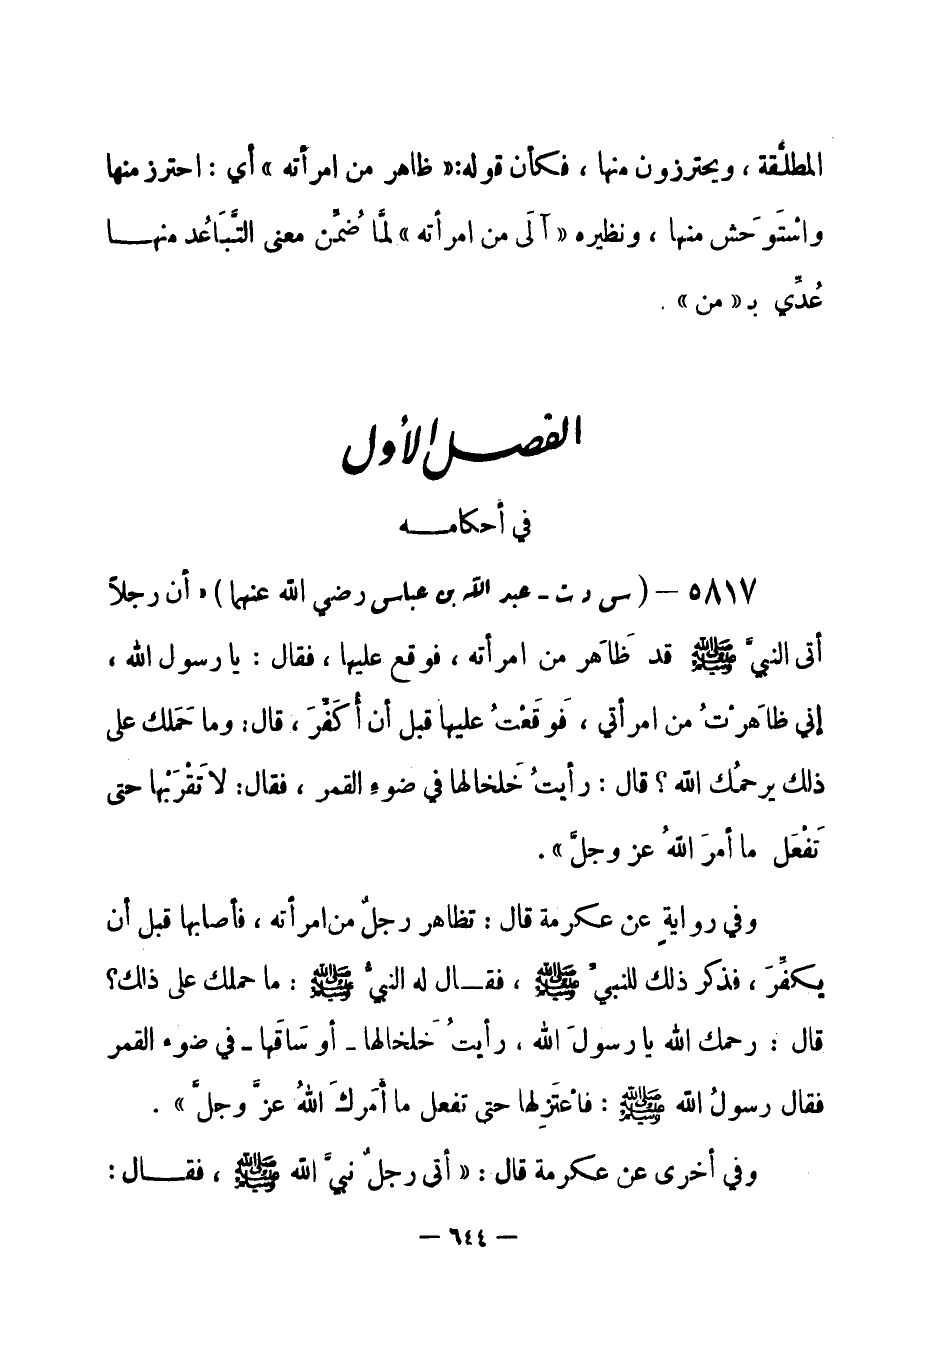 المطلَّقة ، ويحترزون منها ، فكأن قوله:« ظاهر من امرأته » أي : احترز منها
واسْتَوحَش منها ، ونظيره « آلَى من امرأته » لمَّا ضُمِّن معنى التَّبَاعُد منهـا
عُدِّي بـ« من » .
الفصل الأول
في أحكامـه
٥٨١٧ – ( س د ت ـ عبد الله بن عباس رضي الله عنهما ) « أن رجلاً
أتى النبيَّ ﷺ قد ظَاهَر من امرأته ، فوقع عليها ، فقال : يا رسول الله ،
إني ظاهَرْتُ من امرأتي ، فَوقَعْتُ عليها قبل أن أُكَفِّرَ ، قال: وما حَمَلك على
ذلك يرحمُك الله ؟ قال : رأيتُ خَلخالها في ضوءِ القمر ، فقال: لا تَقْرَبْها حتى
تَفْعَل ما أمرَ اللهُ عز وجلَّ » .
وفي روايةٍ عن عكرمة قال : تظاهر رجلٌ من امرأته ، فأصابها قبل أن
يكفِّرَ ، فذكر ذلك للنبيِّ ﷺ ، فقـال له النبيُّ ﷺ : ما حملك على ذلك؟
قال : رحمك الله يا رسولَ الله ، رأيتُ خَلخالها ـ أو سَاقَها ـ في ضوء القمر
فقال رسولُ الله ﷺ : فاعْتَزِلها حتى تفعل ما أَمَركَ اللهُ عزَّ وجلَّ » .
وفي أخرى عن عكرمة قال : « أتى رجلٌ نبيَّ الله ﷺ ، فقـال :
– ٦٤٤ –